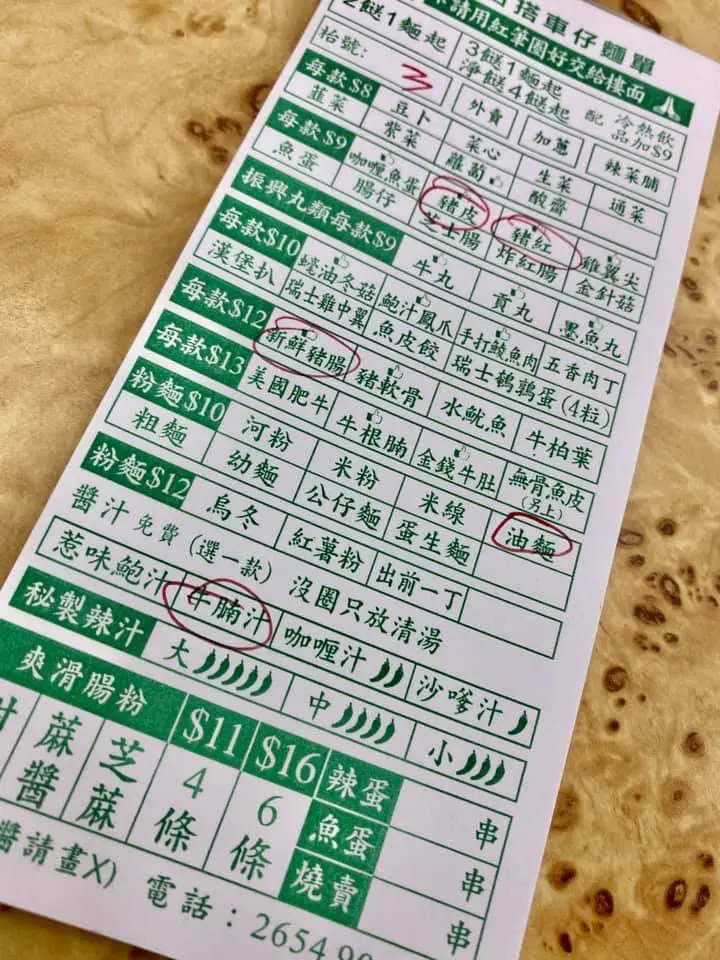 搭車仔麵單
請用紅筆圈好交給樓面
2餸1麵起 3餸1麵起 配 冷熱飲
淨餸4餸起 品加$9
枱號: 3 外賣 加蔥 辣菜脯
每款$8 豆卜 菜心 生菜 通菜
韮菜 紫菜 蘿蔔 酸齋
每款$9 咖喱魚蛋 豬皮 豬紅 雞翼尖
魚蛋 腸仔 芝士腸 炸紅腸 金針菇
振興丸類每款$9 牛丸 貢丸 墨魚丸
每款$10 蠔油冬菇 鮑汁鳳爪 手打鯪魚肉 五香肉丁
漢堡扒 瑞士雞中翼 魚皮餃 瑞士鵪鶉蛋(4粒)
每款$12 新鮮豬腸 豬軟骨 水魷魚 牛柏葉
每款$13 美國肥牛 牛根腩 金錢牛肚 無骨魚皮(另上)
粉麵$10 河粉 米粉 米線 油麵
粗麵 幼麵 公仔麵 蛋生麵
粉麵$12 烏冬 紅薯粉 出前一丁
醬汁 免費 (選一款) 沒圈只放清湯
惹味鮑汁 牛腩汁 咖喱汁 沙嗲汁
秘製辣汁 大 中 小
爽滑腸粉 $11 $16 辣蛋 串
麻醬 芝麻 4條 6條 魚蛋 串
燒賣 串
醬請畫X) 電話：2654